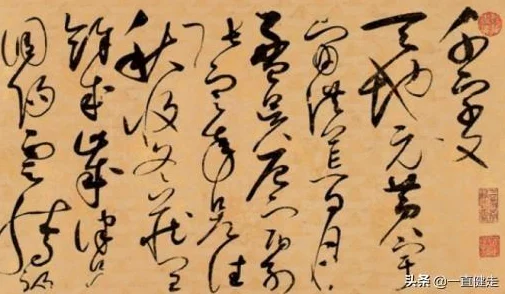 千字文
天地元黃宇
宙洪荒日月
盈昃辰宿列
張寒來暑往
秋收冬藏閏
餘成歲律呂
調陽雲騰致
头条 @一直健走